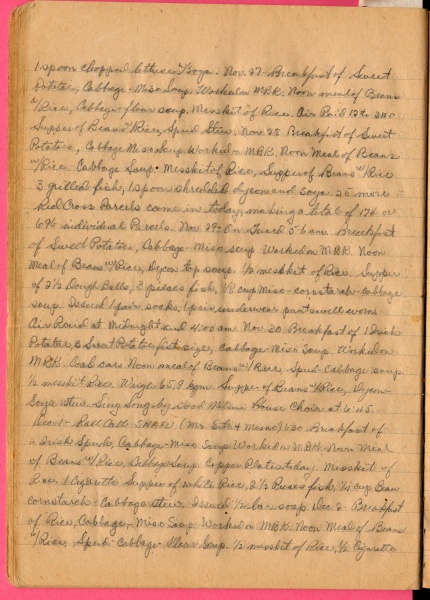 1 spoon chopped lettuce w/soya. Nov. 27- Breakfast of Sweet
Potato, Cabbage-Miso Soup. Worked on MBK. Noon meal of Beans
w/Rice, Cabbage-flour soup. Messkit of Rice. Air Raid 12 to
Supper of Beans w/Rice, Spud Stew. Nov. 28. Breakfast of Sweet
Potatoes, Cabbage Miso Soup. Worked on MBK. Noon Meal of Beans
w/Rice. Cabbage Soup. Messkit of Rice, Supper of Beans w/Rice
3 grilled fish, 1 spoon shredded dycon and soya. 25 more
Red Cross Parcels came in today, making a total of 174 or
696 individual Parcels. Nov. 29- On Guard 5-6 am. Breakfast
of Sweet Potatoes, Cabbage-Miso soup. Worked on MBK. Noon
Meal of Beans w/Rice, Dycon top soup. 1/2 messkit of Rice. Supper
of 2 1/2 Dough Balls, 3 pieces fish, 1/2 cup Miso-cornstarch-cabbage
soup. Issued 1 pair socks, 1 pair underwear
Air Raid at Midnight and 4:00 am. Nov. 30 Breakfast of 1 Irish
Potatoe, & Sweet Potatoe fist size, Cabbage-Miso Soup. Worked on
MBK. Coal cars Noon meal of Beans w/Rice, Spud-Cabbage soup
1/2 messkit Rice. Weight 65.9 kgm. Supper of Beans w/Rice, Dycon-
Soya Stew. Sing Song by Good Nature House Choir at 6:45.
Dec 1- Roll Call Breakfast of
Irish Spuds, Cabbage-Miso Soup. Worked on MBK. Noon Meal
of Beans w/Rice, Cabbage Soup. Copper Plates today. Messkit of
Rice 1 Cigarette Supper of white Rice, 2 1/2 Pieces fish, 1/4 cup Bean
cornstarch-Cabbage stew. Issued 1/2 bar soap Dec. 2- Breakfast
of Rice, Cabbage, Miso Soup. Worked on MBK. Noon Meal of Beans
w/Rice, Spud-Cabbage-Flour Soup. 1/2 messkit of Rice, 1/2 Cigarette